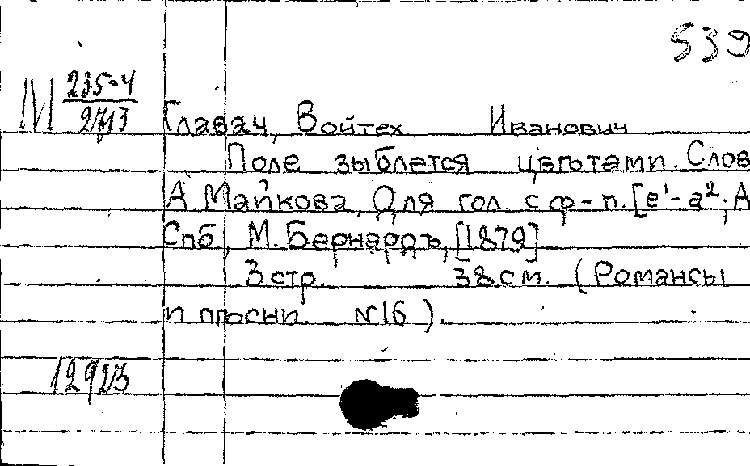 539
М 235-4
2713
Главач, Войтех Иванович
Поле зыблется цветами. Слов
А. Майкова. Для гол. с ф-п. [e¹-a²; А
Спб, М. Бернардъ, [1879]
3 стр. 38 см. (Романсы
и песни №16).
12923